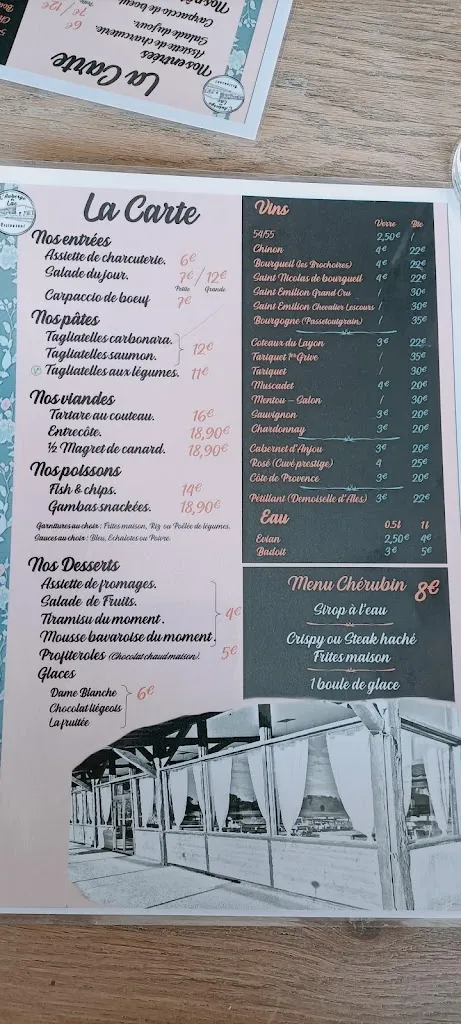 La Carte
Nos entrées
Assiette de charcuterie. 6€
Salade du jour. 7€ / 12€
Petite Grande
Carpaccio de boeuf 7€
Nos pâtes
Tagliatelles carbonara.
Tagliatelles saumon. 12€
Tagliatelles aux légumes. 11€
Nos viandes
Tartare au couteau. 16€
Entrecôte. 18,90€
½ Magret de canard. 18,90€
Nos poissons
Fish & chips. 14€
Gambas snackées. 18,90€
Garnitures au choix : Frites maison, Riz ou Poêlée de légumes.
Sauces au choix : Bleu, Echalotes ou Poivre.
Nos Desserts
Assiette de fromages.
Salade de Fruits.
Tiramisu du moment. 4€
Mousse bavaroise du moment.
Profiteroles (Chocolat chaud maison). 5€
Glaces
Dame Blanche 6€
Chocolat liégeois
La fruitée
Vins
Verre Btle
54/55 2,50€ /
Chinon 4€ 22€
Bourgueil (les Brochoires) 4€ 22€
Saint Nicolas de bourgueil 4€ 22€
Saint Emilion Grand Cru / 30€
Saint Emilion Chevalier Lescours / 30€
Bourgogne (Passetoutgrain) / 35€
Coteaux du Layon 3€ 22€
Tariquet 1ère Grive / 35€
Tariquet / 30€
Muscadet 4€ 20€
Mentou - Salon / 30€
Sauvignon 3€ 20€
Chardonnay 3€ 20€
Cabernet d'Anjou 3€ 20€
Rosé (Cuvé prestige) 4 25€
Côte de Provence 3€ 20€
Pétillant (Demoiselle d'Ales) 3€ 22€
Eau
0.5l 1l
Evian 2,50€ 4€
Badoit 3€ 5€
Menu Chérubin 8€
Sirop à l'eau
Crispy ou Steak haché
Frites maison
1 boule de glace
La Carte
Nos entrées
Assiette de charcuterie. 6€
Salade du jour. 7€ / 12€
Carpaccio de boeuf